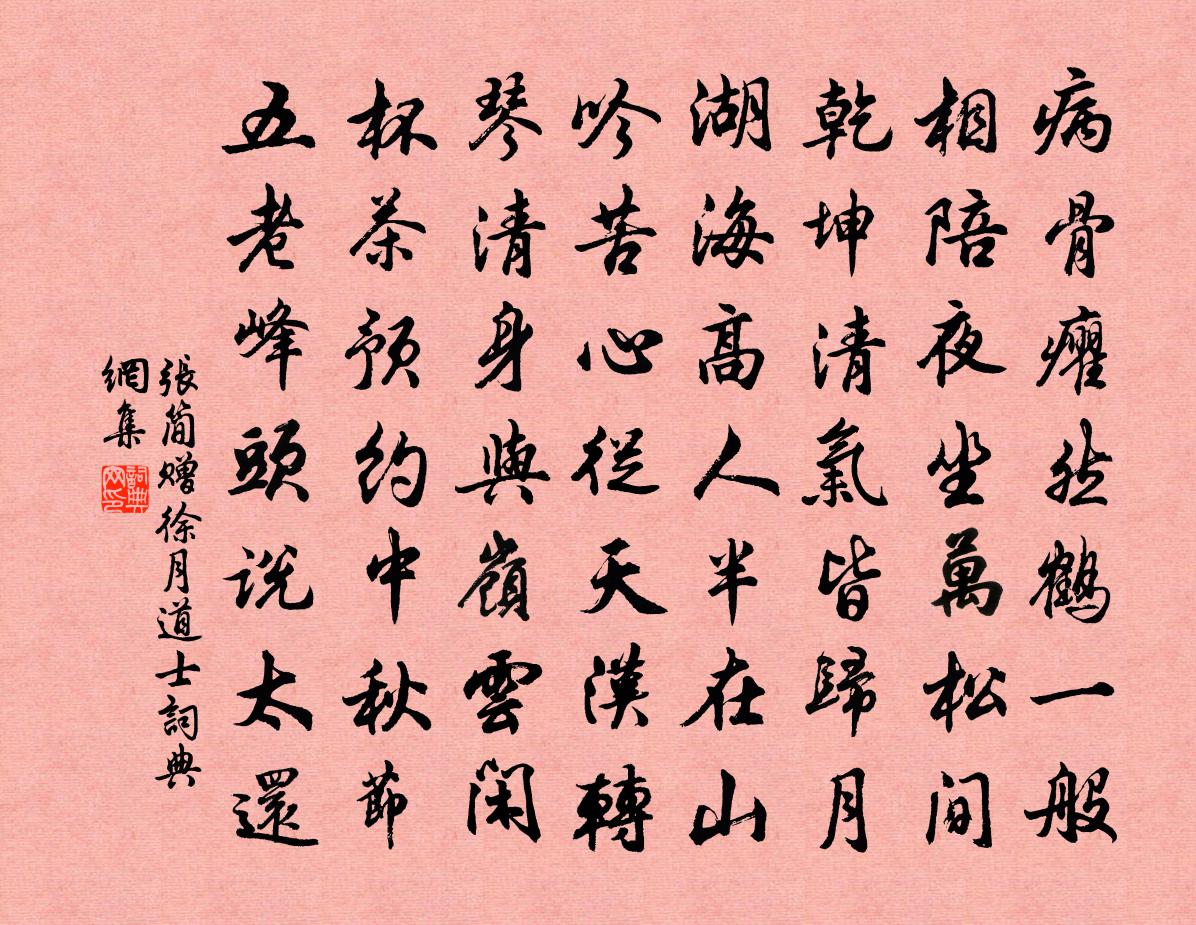 病骨癯然鶴一般
相陪夜坐萬松間
乾坤清氣皆歸月
湖海高人半在山
吟苦心從天漢轉
琴清身與嶺雲閑
杯茶預約中秋節
五老峰頭說太還
張簡贈徐月道士詞典
網集
詞典
网印